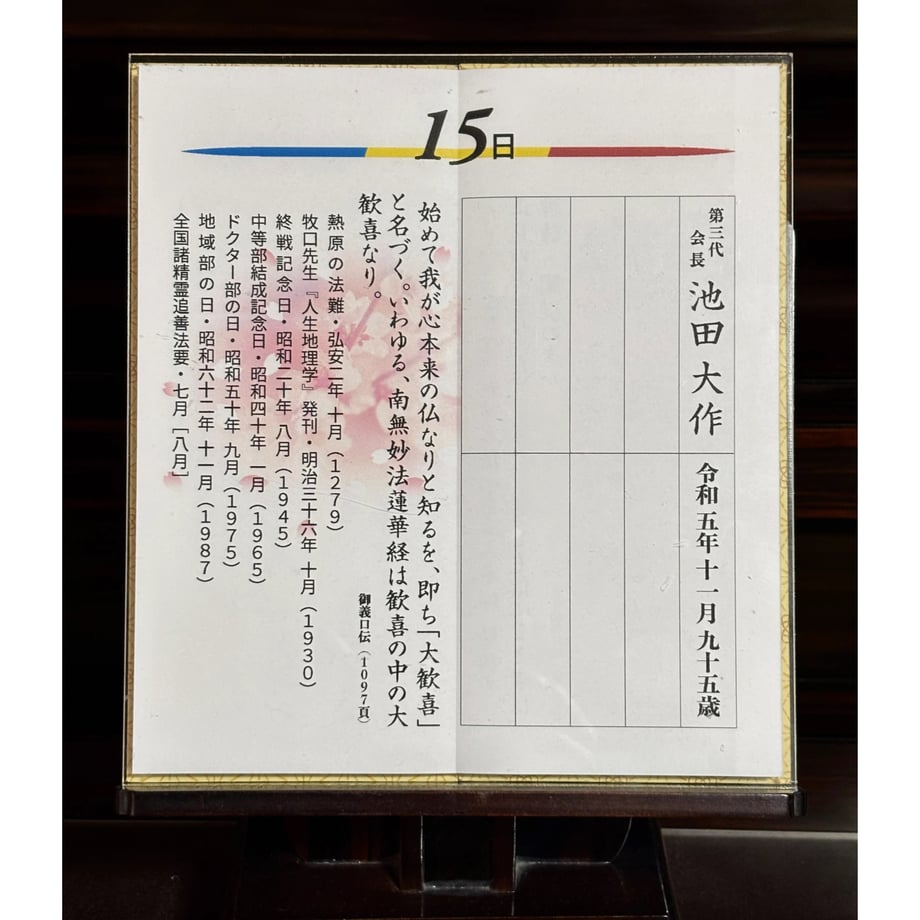 15日
第三代
会長
池田大作
令和五年十一月九十五歳
始めて我が心本来の仏なりと知るを、即ち「大歓喜」
と名づく。いわゆる、南無妙法蓮華経は歓喜の中の大
歓喜なり。
御義口伝(1097頁)
熱原の法難・弘安二年 十月(1279)
牧口先生『人生地理学』発刊・明治三十六年 十月(1930)
終戦記念日・昭和二十年 八月(1945)
中等部結成記念日・昭和四十年 一月(1965)
ドクター部の日・昭和五十年 九月(1975)
地域部の日・昭和六十二年 十一月(1987)
全国諸精霊追善法要・七月[八月]